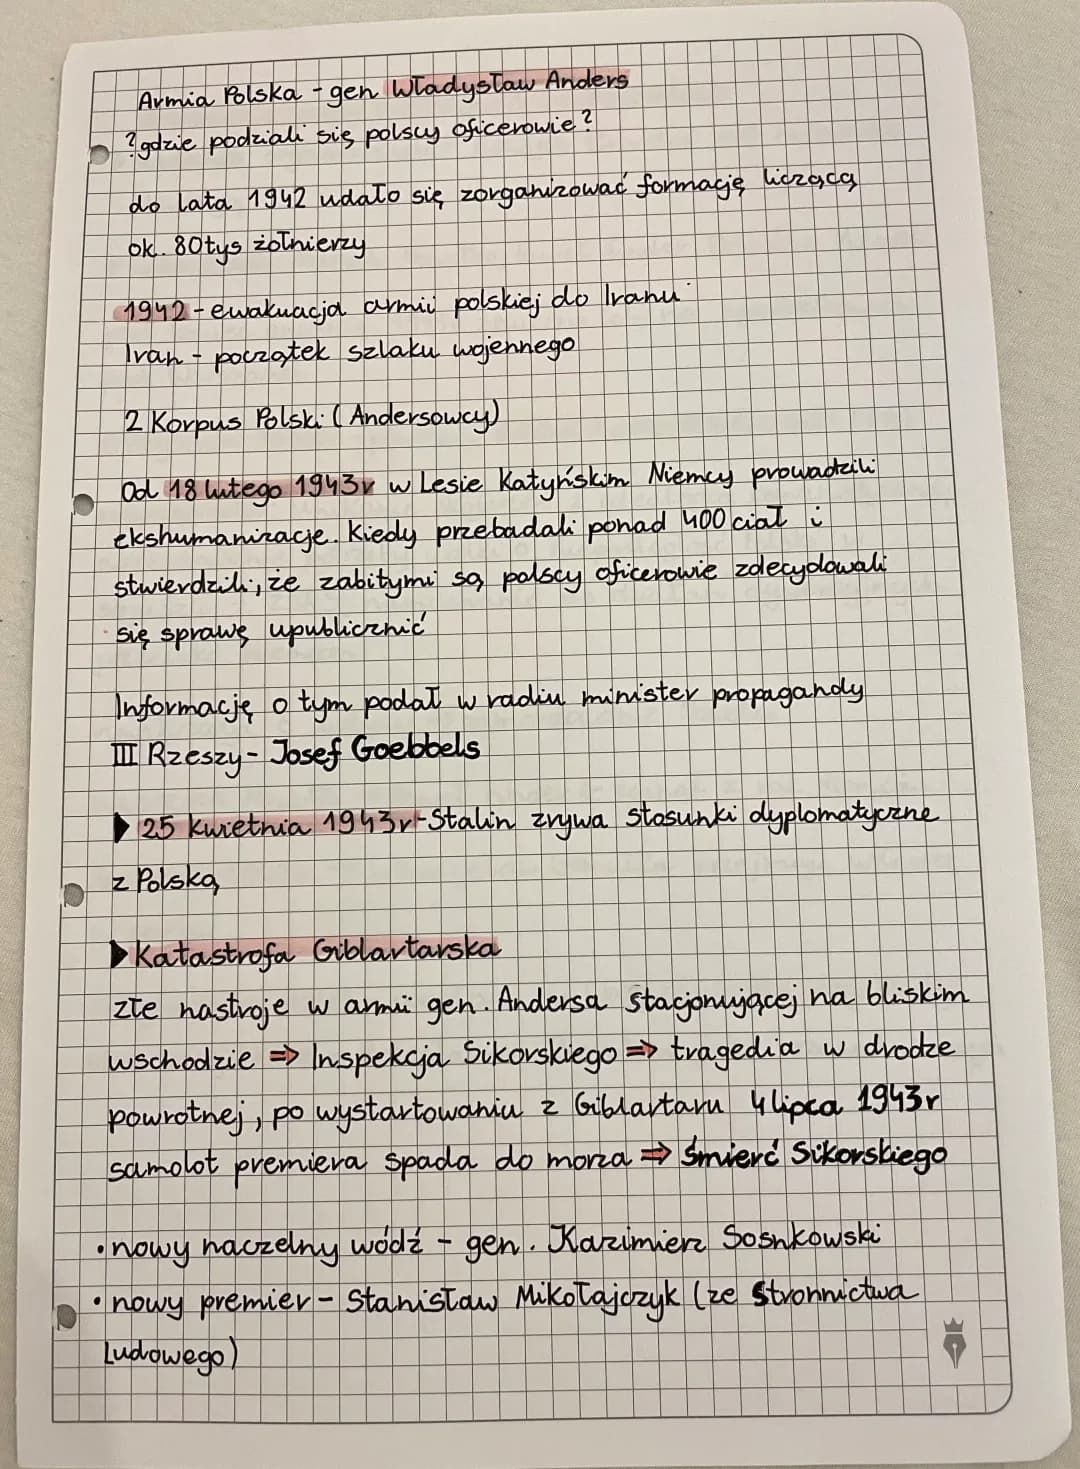 Armia Polska - gen Władysław Anders
? gdzie podziali się polscy oficerowie ?
do lata 1942 udało się zorganizować formację liczącą
ok. 80tys żołnierzy
1942 - ewakuacja armii polskiej do Iranu
Iran - początek szlaku wojennego
2 Korpus Polski (Andersowcy)
Od 18 lutego 1943r w Lesie Katyńskim Niemcy prowadzili
ekshumanizacje. Kiedy przebadali ponad 400 ciał i
stwierdzili, że zabitymi są polscy oficerowie zdecydowali
się sprawę upublicznić
Informację o tym podał w radiu minister propagandy
III Rzeszy - Josef Goebbels
▶ 25 kwietnia 1943r - Stalin zrywa stosunki dyplomatyczne
z Polską
▶ Katastrofa Giblartarska
złe nastroje w armii gen. Andersa stacjonującej na bliskim
wschodzie => Inspekcja Sikorskiego => tragedia w drodze
powrotnej, po wystartowaniu z Giblartaru 4 lipca 1943r
samolot premiera spada do morza => Śmierć Sikorskiego
• nowy naczelny wódź - gen. Kazimierz Sosnkowski
• nowy premier - Stanisław Mikołajczyk (ze Stronnictwa
Ludowego)